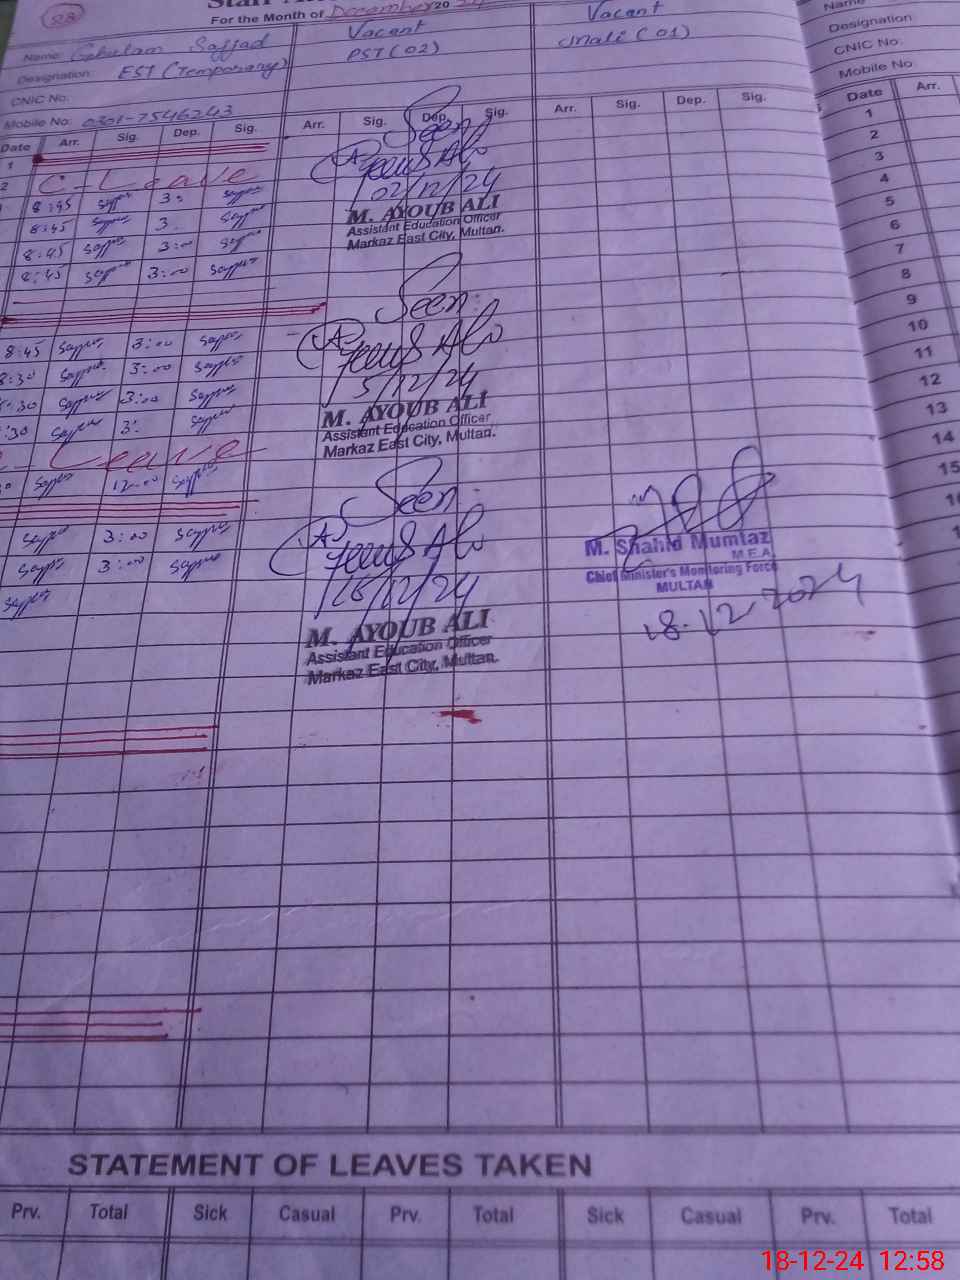 23
For the Month of December 20 24
Name: Ghulam Sajjad
Vacant
Vacant
Name
Designation: EST (Temporary)
PST (02)
Mali (01)
Designation:
CNIC No.
CNIC No:
Mobile No: 0301-7546243
Mobile No
Date Arr. Sig. Dep. Sig. Arr. Sig. Dep. Sig. Arr. Sig. Dep. Sig. Date Arr.
1
2 C-Leave
8:45 3:
8:45 3
8:45 3:00
8:45 3:00
8:45 3:00
8:30 3:00
8:30 3:00
:30 3:
Leave
12:00
3:00
3:00
Seen
02/12/24
M. AYOUB ALI
Assistant Education Officer
Markaz East City, Multan.
Seen
5/12/24
M. AYOUB ALI
Assistant Education Officer
Markaz East City, Multan.
Seen
/12/24
M. AYOUB ALI
Assistant Education Officer
Markaz East City, Multan.
M. Shahid Mumtaz
M.E.A.
Chief Minister's Monitoring Force
MULTAN
18.12.2024
1
2
3
4
5
6
7
8
9
10
11
12
13
14
15
STATEMENT OF LEAVES TAKEN
Prv. Total Sick Casual Prv. Total Sick Casual Prv. Total
18-12-24 12:58